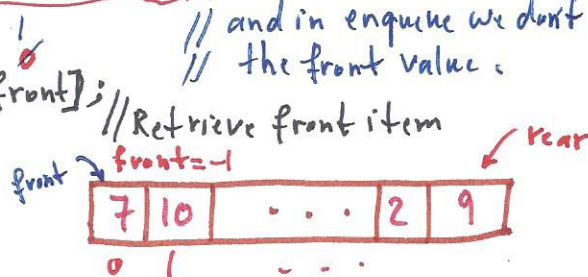 // and in enqueue we don't
1
0
// the front value.
front];
//Retrieve front item
rear
front
front=-1
7 10 . . . 2 9
0 1 - - - -